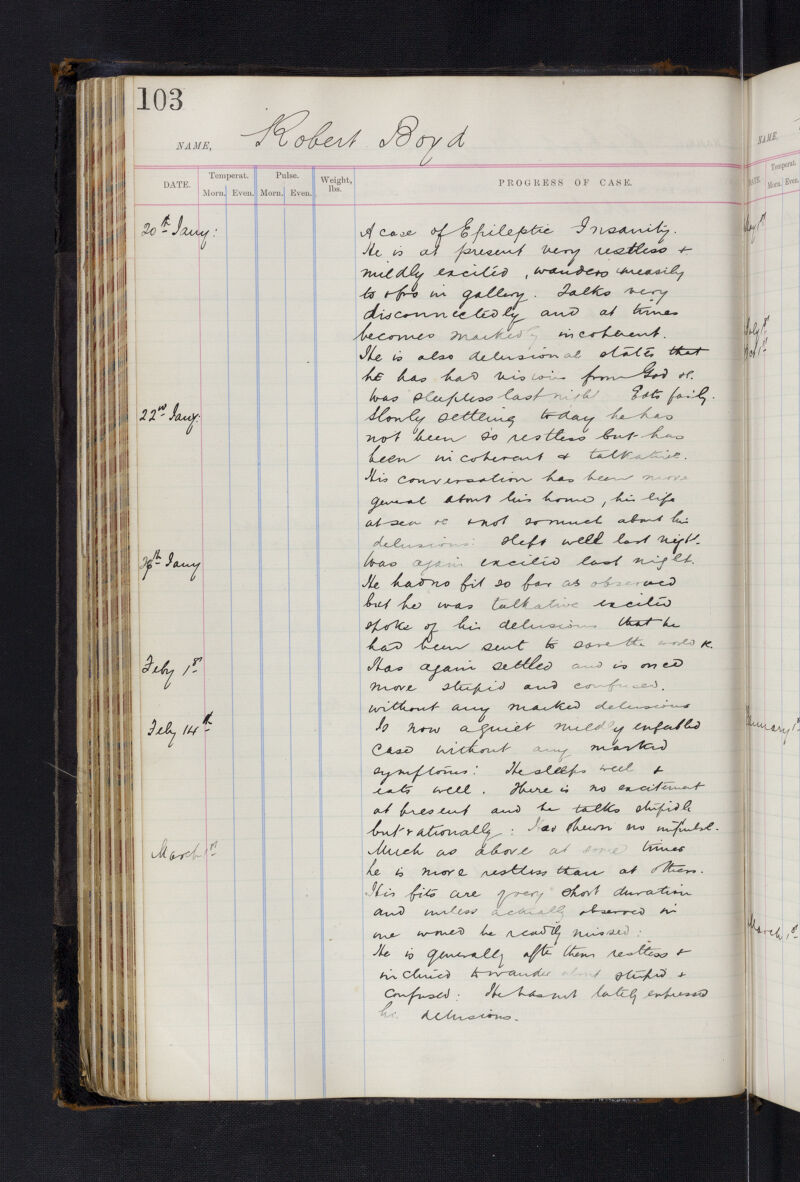 103
NAME, Robert Boyd
DATE. Temperat. Morn. Even. Pulse. Morn. Even. Weight, lbs. PROGRESS OF CASE.
20th Jany: A case of Epileptic Insanity.
He is at present very restless &
mildly excited, wanders uneasily
to & fro in gallery. Talks very
disconnectedly and at times
becomes markedly incoherent.
He is also delusional states that
he has had visions from God &c.
Was sleepless last night Eats fairly.
22nd Jany: Slowly settling today he has
not been so restless but has
been incoherent & talkative.
His conversation has been more
general about his home, his life
at sea &c & not so much about his
delusions: Slept well last night.
26th Jany Was again excited last night.
He had no fit so far as observed
but he was talkative excited
spoke of his delusions that he
had been sent to save the world &c.
Feby 1st Has again settled and is once
more stupid and confused.
without any marked delusions
Feby 14th Is now a quiet mildly enfeebled
case without any marked
symptoms: He sleeps well &
eats well. There is no excitement
at present and he talks stupidly
but rationally: Has shewn no impulse.
March 1st Much as above at some times
he is more restless than at others.
His fits are of very short duration
and unless actually observed in
one would be readily missed:
He is generally after them restless &
inclined to wander about stupid &
confused: He has not lately expressed
his delusions.
NAME.
DATE. Temperat. Morn. Even.
May 1st
July 1st
Oct 1st
January 1st
March 1st